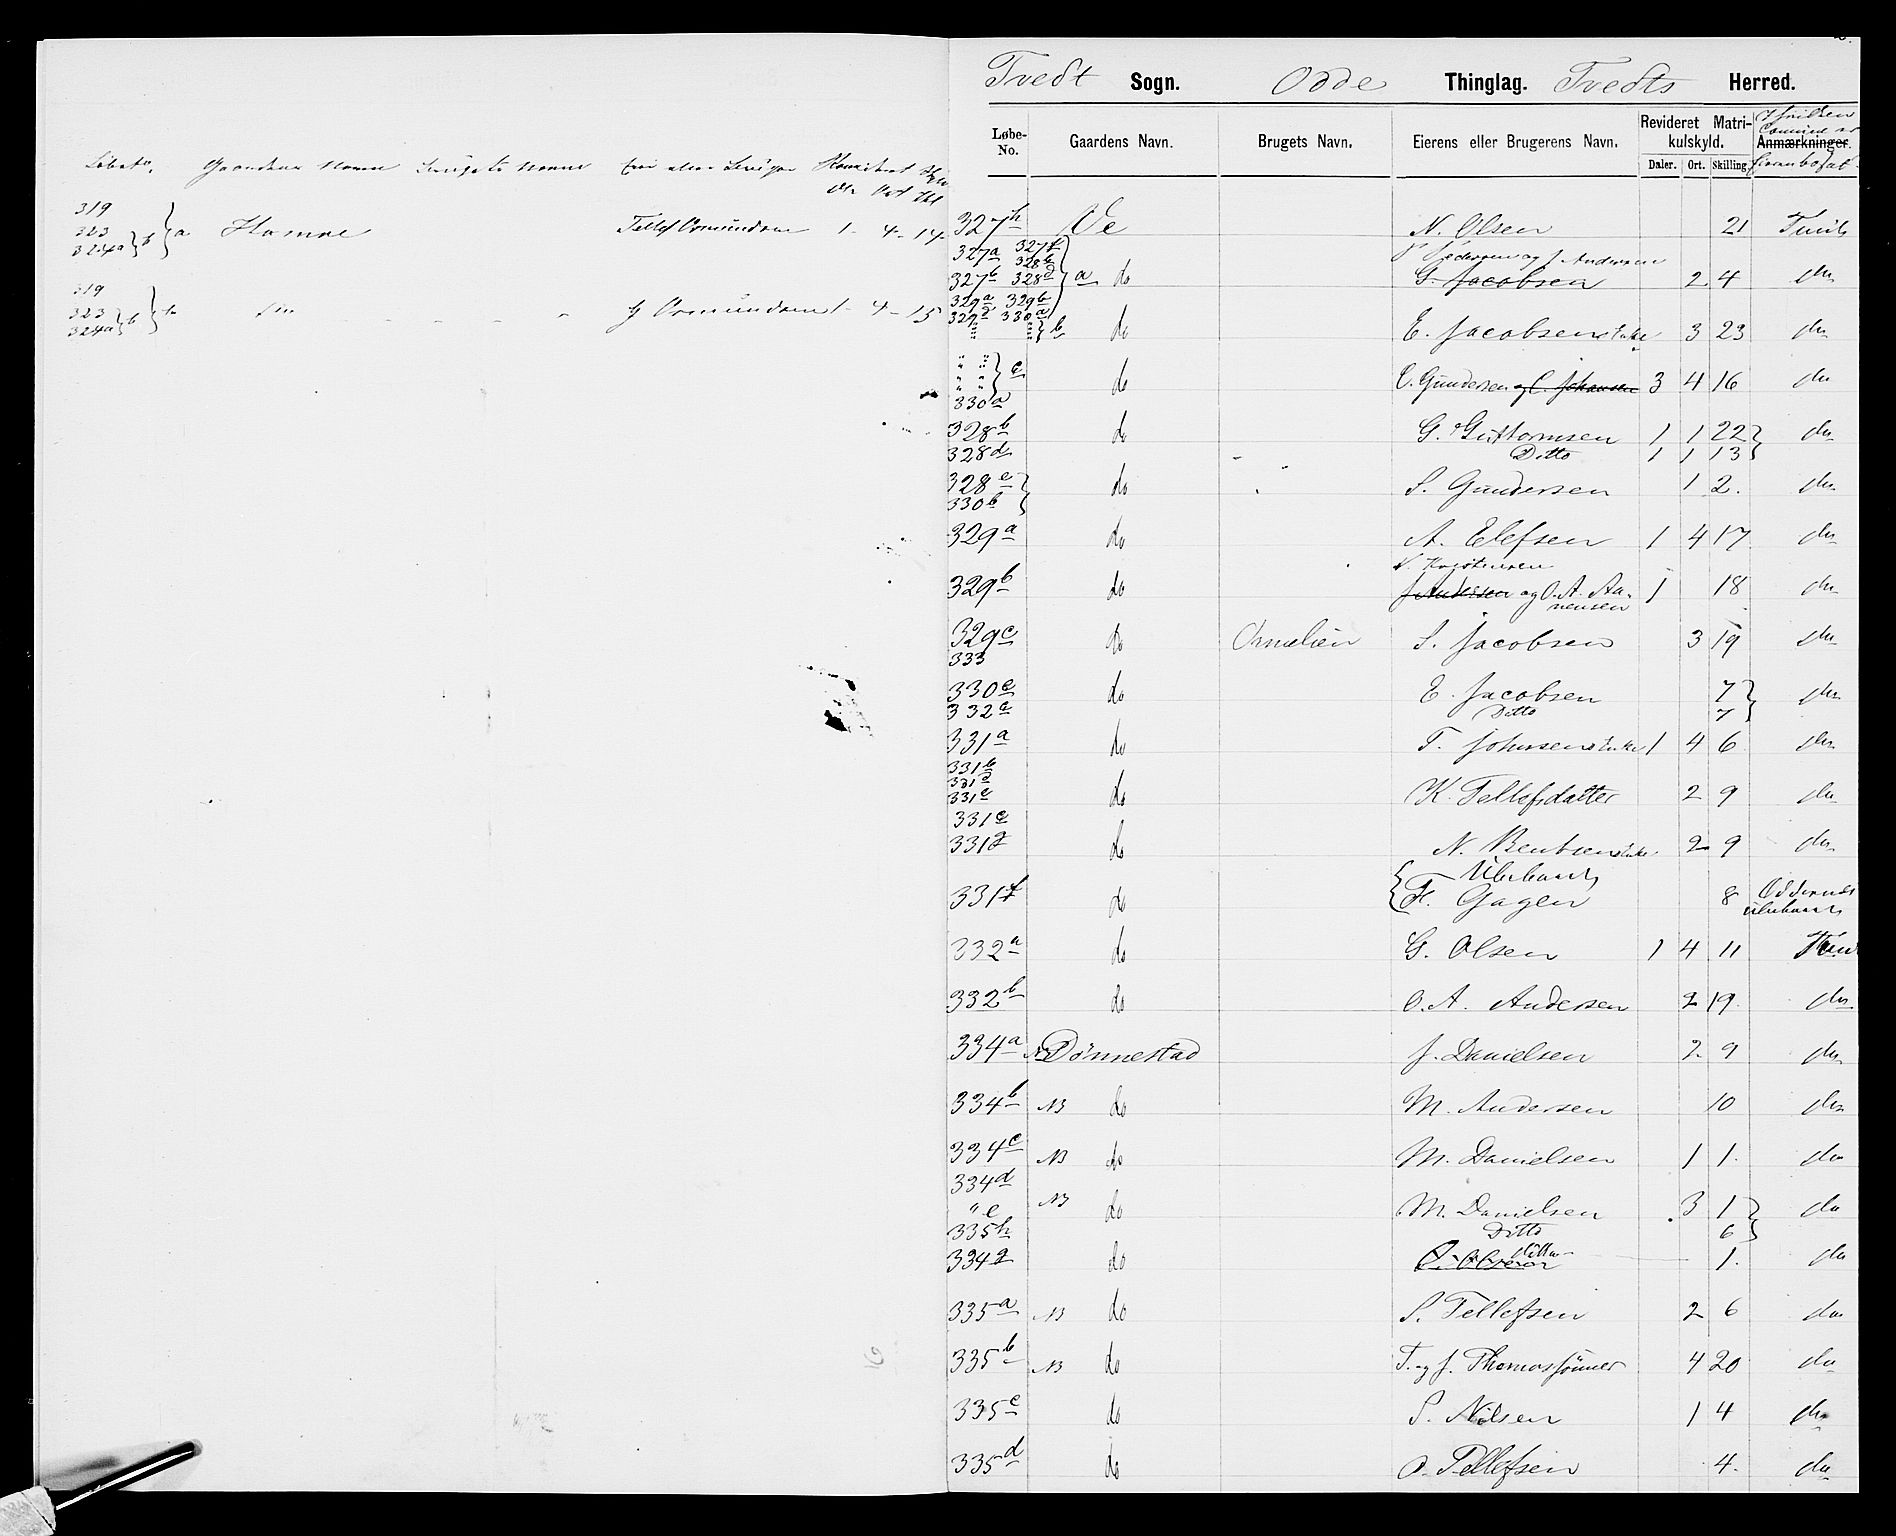 Gaardens Navn Brugets Navn
319
323
324a } b } a Hamre Tellef Osmundsen 1 - 4 - 14
319
323
324a } b } b do G Osmundsen 1 - 4 - 15
Tvedt Sogn. Odde Thinglag. Tvedts Herred.
Løbe-No. Gaardens Navn. Brugets Navn. Eierens eller Brugerens Navn. Revideret Matrikulskyld. Anmærkninger.
Daler. Ort. Skilling
327h Ve N. Olsen 21 Tveit
P Pedersen og J Andersen
327a 327f
328b
327b 328d } a do G. Jacobsen 2 4 do
329a 329b
329d 330a
" " } b do E. Jacobsens Enke 3 23 do
" "
" " } c do O. Gundersen og C. Johansen 3 4 16 do
330a
328b do G. Guttormsen 1 1 22 } do
328d Ditto 1 1 13
328e } do S. Gundersen 1 2 do
330b
329a do A. Elefsen 1 4 17 do
N. Kristensen
329b do J Andersen og O. A. Aanensen 1 18 do
329c do Omelien S. Jacobsen 3 19 do
333
330c do E. Jacobsen 7 } do
332c Ditto 7
331a do T. Johnsens Enke 1 4 6 do
331b
331d
331e do K. Tellefsdatter 2 9 do
331c
331g do N. Bentsens Enke 2 9 do
331f do F. Gagen 8 Oddernes
332a do G. Olsen 1 4 11 Tveit
332b do O. A. Andersen 2 19 do
334a NB Dønnestad J. Danielsen 2 9 do
334b NB do M. Andersen 10 do
334c NB do M. Danielsen 1 1 do
334d
" e NB do M. Danielsen 3 1 } do
335h Ditto 6
334g do O. Olsen Ditto 1 do
335a NB do S. Tellefsen 2 6 do
335b NB do T. og J. Thomassønner 4 20 do
335c do S. Nilsen 1 4 do
335d do O. Tellefsen 4 do